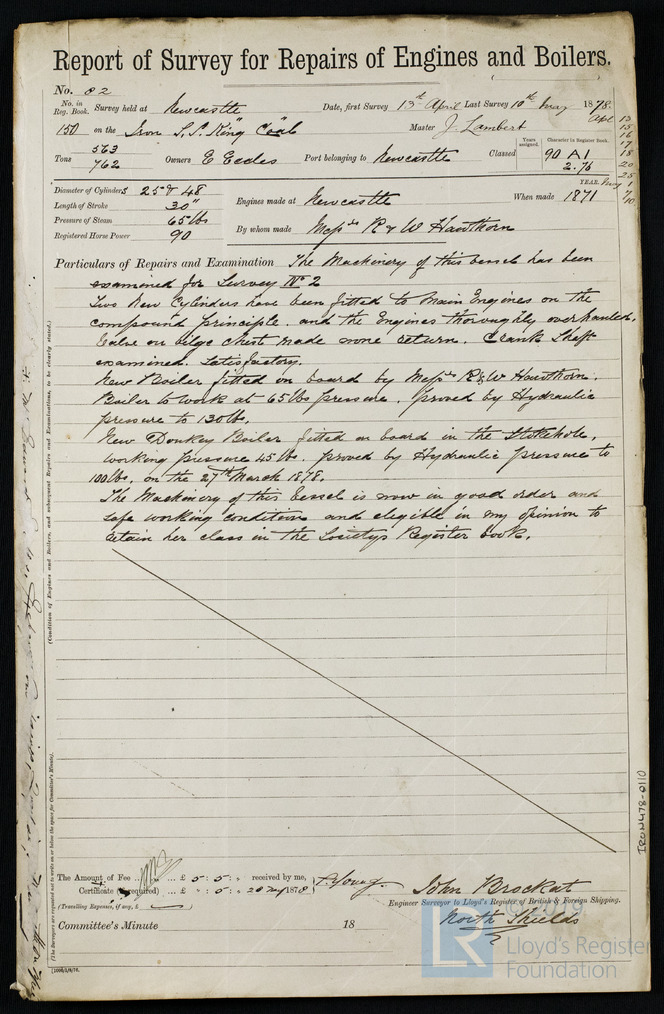 Report of Survey for Repairs of Engines and Boilers.
No. 82
No. in Reg. Book. Survey held at Newcastle Date, first Survey 13th April Last Survey 10th May 1878.
150 on the Iron S.S. "King Coal" Master J. Lambert
Apl 13
15
16
17
18
20
25
May 1
7
10
Tons 563
762 Owners E Eccles Port belonging to Newcastle Classed
Years assigned. 90
Character in Register Book. A1
2.76
YEAR.
Diameter of Cylinders 25 & 48
Length of Stroke 30"
Pressure of Steam 65 lbs
Registered Horse Power 90
Engines made at Newcastle When made 1871
By whom made Messrs R & W Hawthorn
Particulars of Repairs and Examination The Machinery of this vessel has been
examined for Survey No 2
Two New Cylinders have been fitted to Main Engines on the
compound principle. and the Engines thoroughly overhauled.
Valve on bilge chest made none return. Crank Shaft
examined. Satisfactory.
New Boiler fitted on board by Messrs R & W Hawthorn.
Boiler to work at 65 lbs pressure. proved by Hydraulic
pressure to 130 lbs.
New Donkey Boiler fitted on board in the Stokehole.
working pressure 45 lbs. proved by Hydraulic pressure to
100 lbs. on the 27th March 1878.
The Machinery of this Vessel is now in good order and
safe working condition and eligible in my opinion to
retain her class in the Society's Register book.
(Condition of Engines and Boilers, and subsequent Repairs and Examinations, to be clearly stated.)
(The Surveyors are requested not to write on or below the space for Committee's Minute).
The Amount of Fee ... £ 5 : 5 : " received by me,
Certificate (if required) ... £ " : 5 : " 20 May 1878
(Travelling Expenses, if any, £ )
T. Young.
John Brockat
Engineer Surveyor to Lloyd's Register of British & Foreign Shipping.
North Shields
Committee's Minute 18
IRON478-0110
© 2019
LR
Lloyd's Register
Foundation